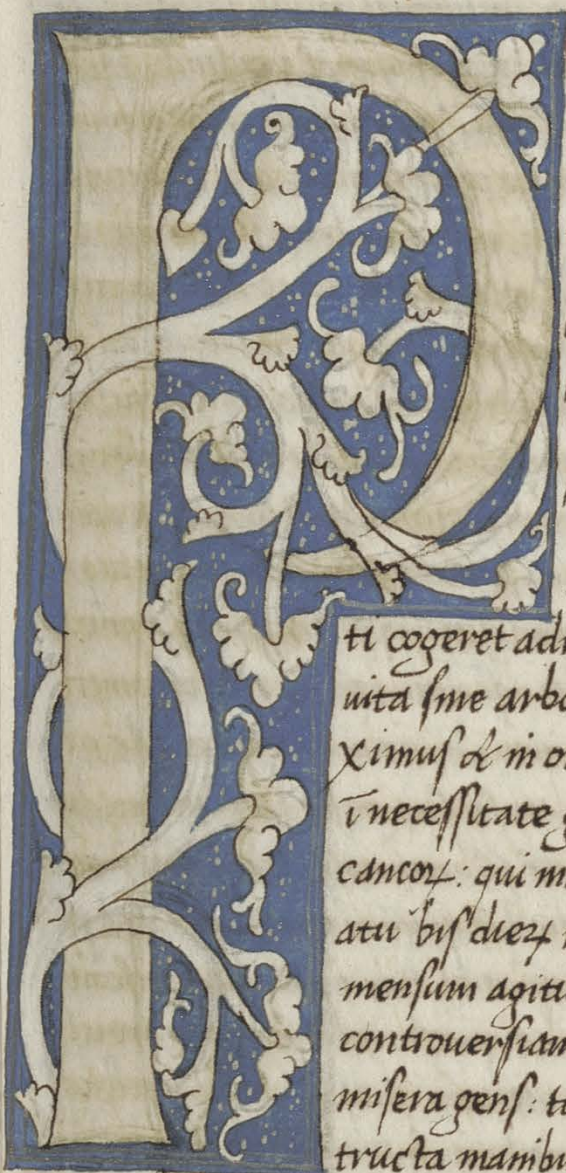 P
ti cogeret ad
uita sine arbo
ximus & in o
ī necessitate
caucoꝝ: qui
atu bis dieꝝ
mensum agit
controuersiam
misera gens: t
tructa manib